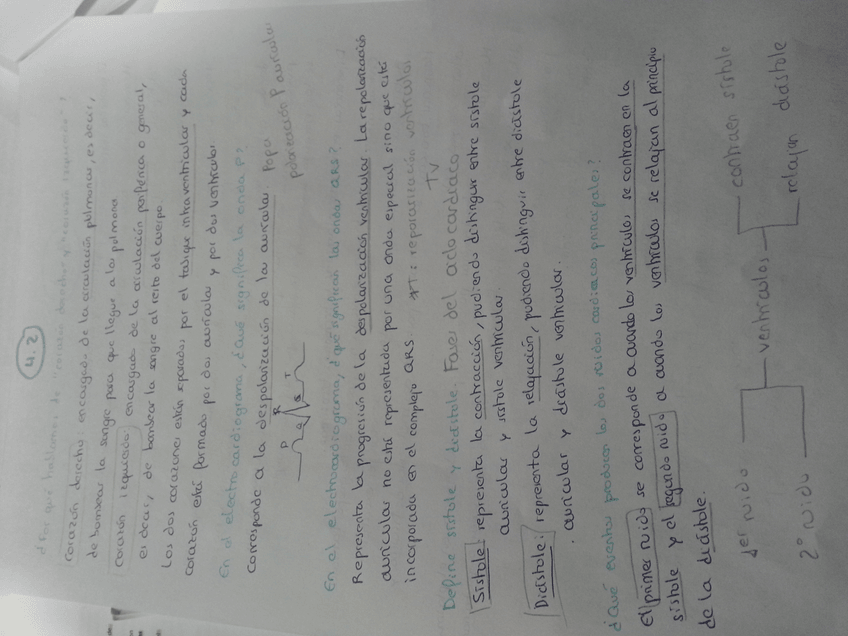 4.2
¿Por qué hablamos de "corazón derecho y "corazón izquierdo"?
Corazón derecho: encargado de la circulación pulmonar, es decir,
de bombear la sangre para que llegue a los pulmones
Corazón izquierdo: encargado de la circulación periférica o general,
es decir, de bombear la sangre al resto del cuerpo
Los dos corazones están separados por el tabique intraventricular y cada
corazón está formado por dos aurículas y por dos ventrículos
En el electrocardiograma, ¿Qué significa la onda P?
Corresponde a la despolarización de las aurículas
P R Q S T
En el electrocardiograma, ¿qué significan las ondas QRS?
Representa la progresión de la despolarización ventricular. La repolarización
auricular no está representada por una onda especial sino que está
incorporada en el complejo QRS. *T: repolarización ventrículos
TV
Define sístole y diástole. Fases del ciclo cardíaco
Sístole: representa la contracción, pudiendo distinguir entre sístole
auricular y sístole ventricular.
Diástole: representa la relajación, pudiendo distinguir entre diástole
auricular y diástole ventricular.
¿Qué eventos producen los dos ruidos cardiacos principales?
El primer ruido se corresponde a cuando los ventrículos se contraen en la
sístole y el segundo ruido a cuando los ventrículos se relajan al principio
de la diástole.
1er ruido
2º ruido
ventrículos
contraen sístole
relajan diástole